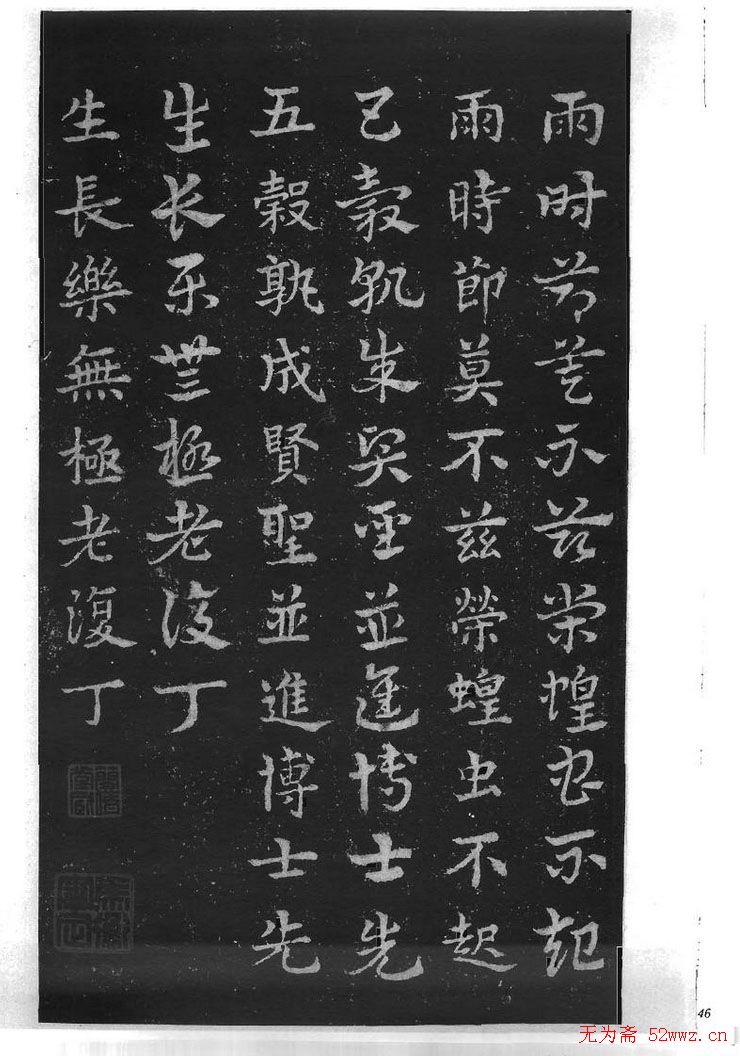 雨時節莫不兹榮蝗虫不起
雨時節莫不兹榮蝗虫不起
五穀孰成賢聖並進博士先
五穀孰成賢聖並進博士先
生長樂無極老復丁
生長樂無極老復丁
46
无为斋 52wwz.cn